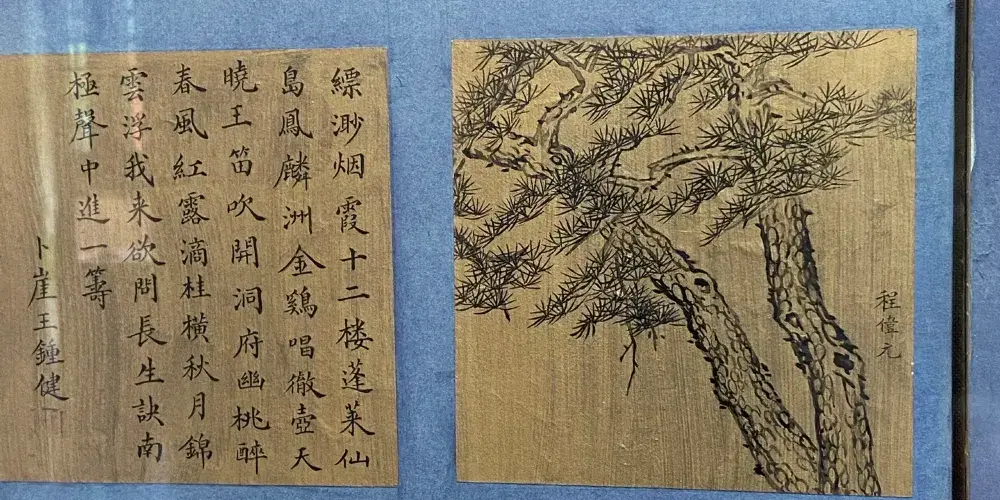 程偉元
縹渺烟霞十二楼蓬莱仙
島鳳麟洲金鷄唱徹壺天
曉王笛吹開洞府幽桃醉
春風紅露滴桂横秋月錦
雲浮我来欲問長生訣南
極聲中進一籌
卜崖王鍾健